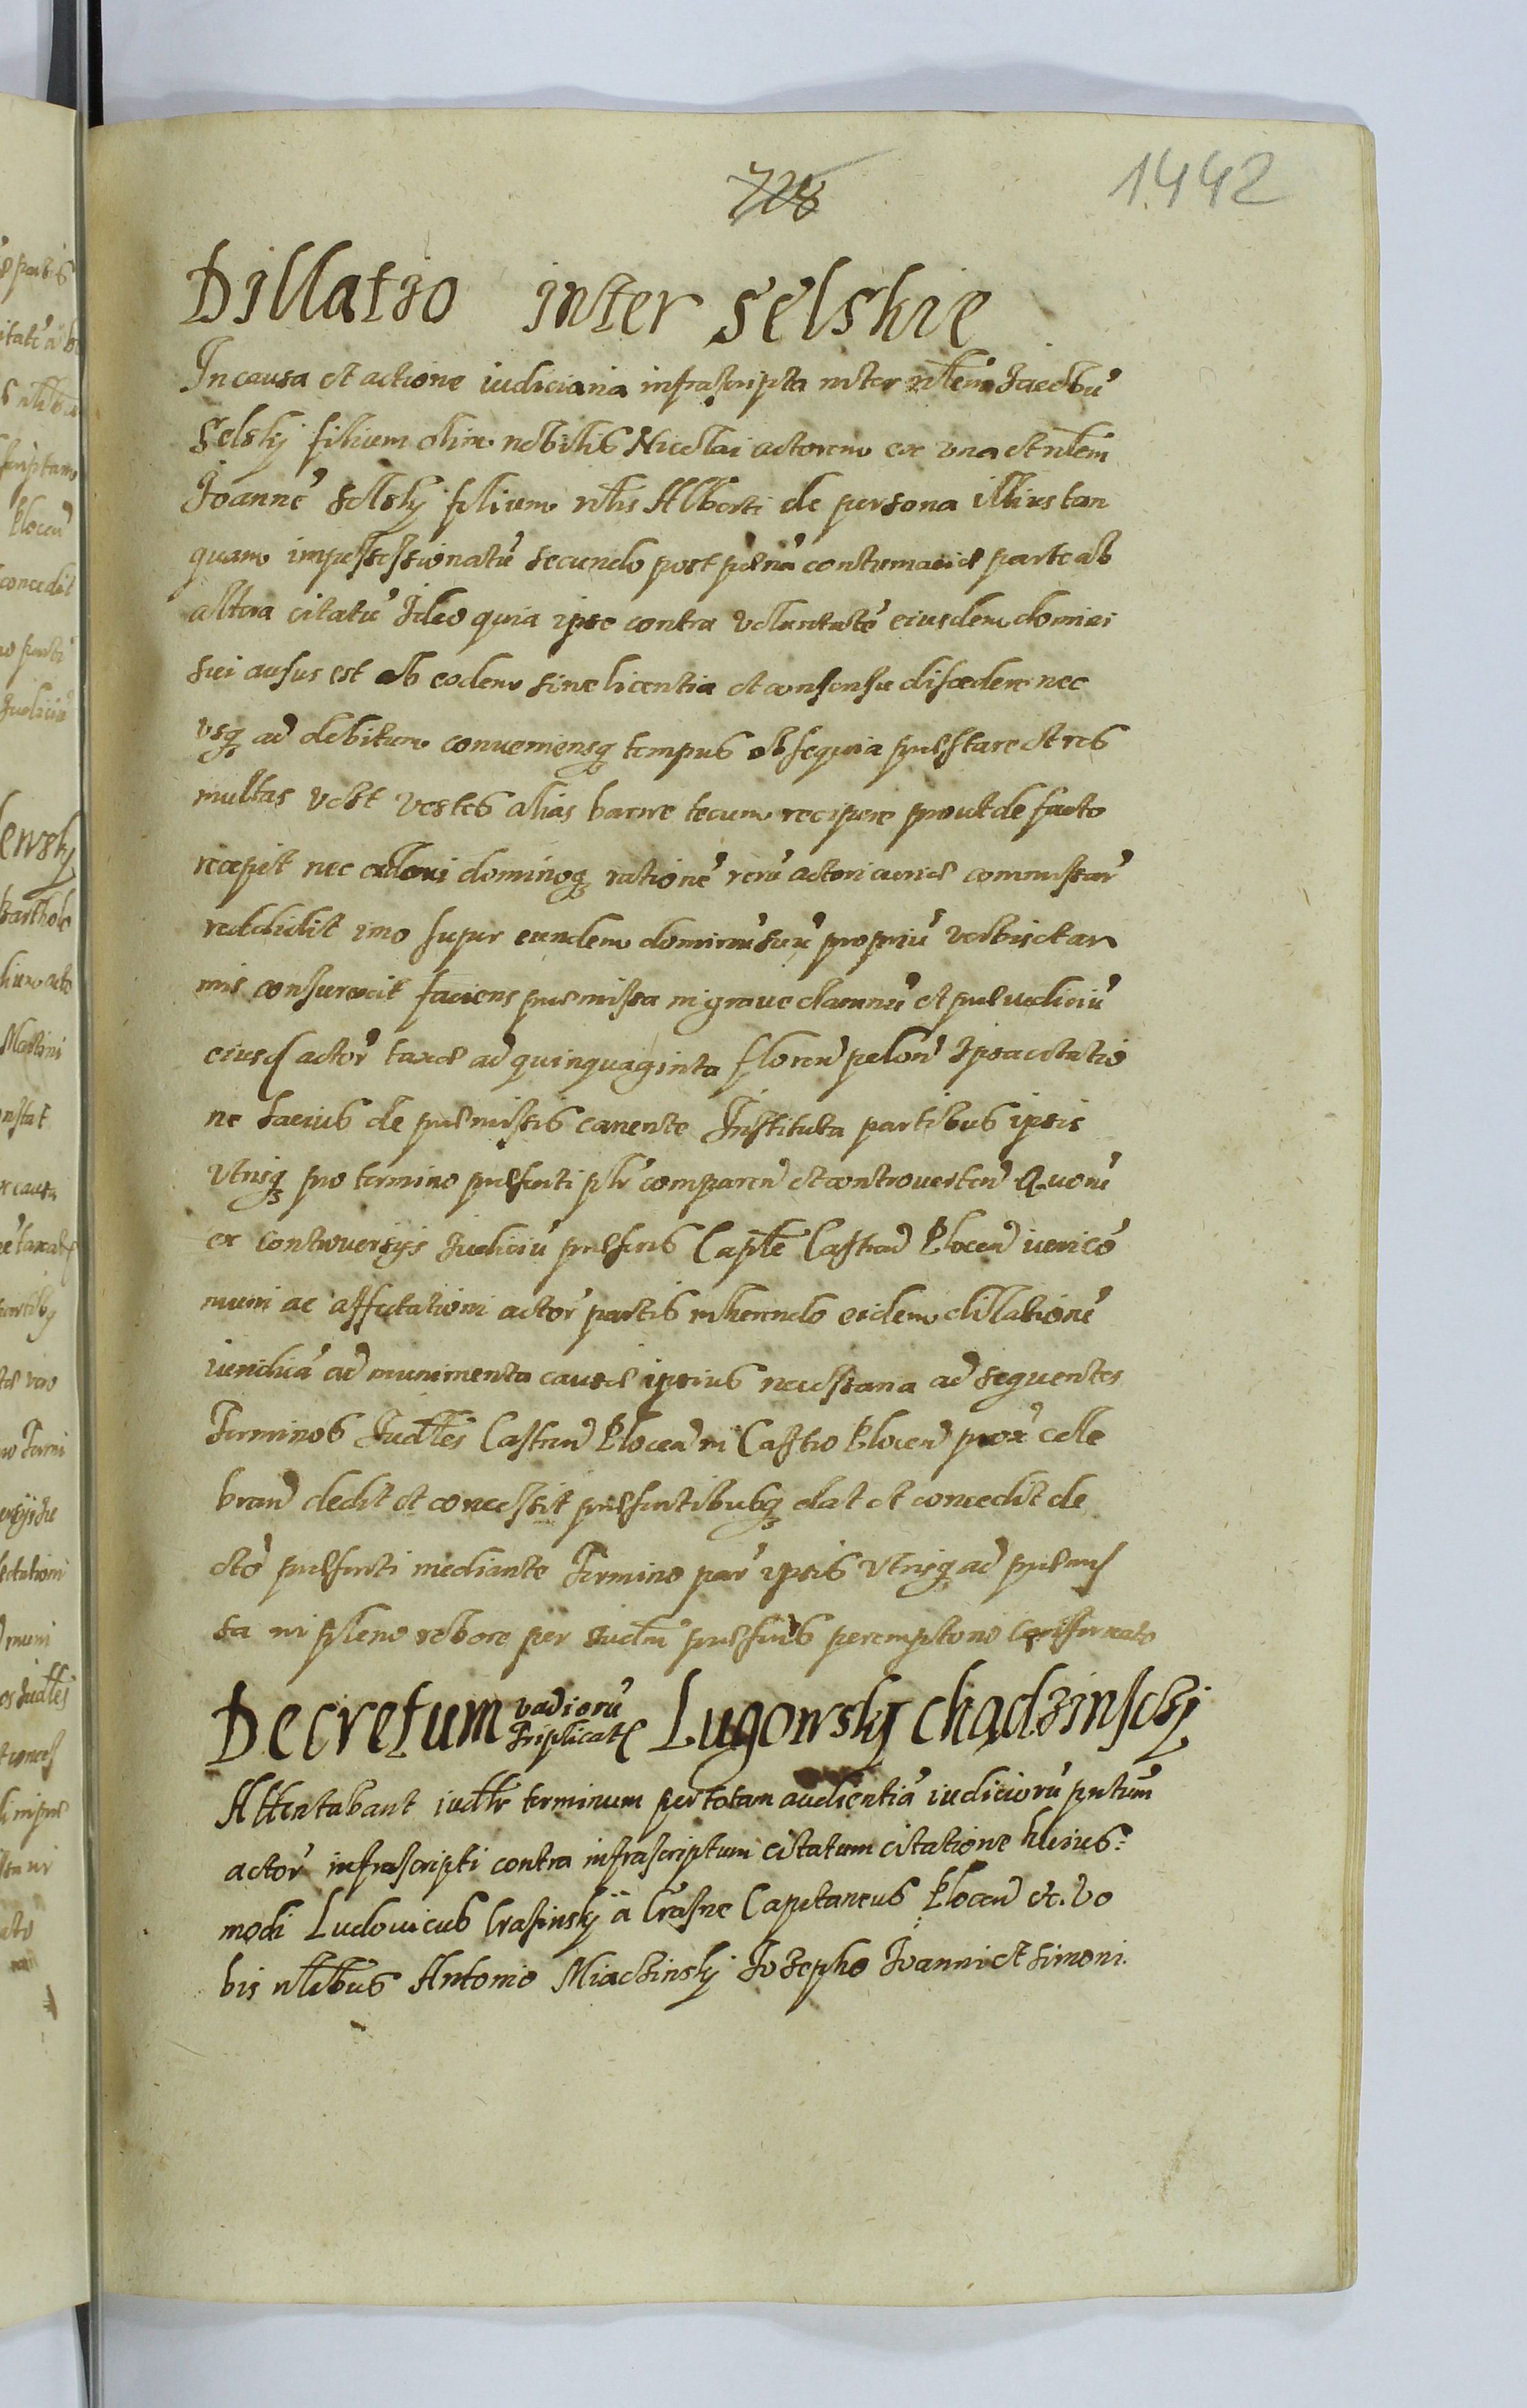 728
1442
Dillatio inter Selskie
In causa et actione iudiciaria infrascripta inter nlem Jacobũ
Selskj filium olim nobilis Nicolai actorem ex una et nlem
Joannẽ Selskj filium nlis Alberti de persona illius tan
quam impossessionatũ secundo post pœnã contumaciæ parte ab
altera citatũ Ideo quia ipse contra voluntatẽ eiusdem domini
sui ausus est ab eodem sine licentia et consensu discedere nec
usq ad debitum conveniensq tempus obsequia præstare et res
multas vest vestes alias barwe secum recipere prout de facto
recepit nec dominoq rationẽ rerũ actori commissar
reddidit imo super eundem dominũ suũ propriũ verbis et ar
mis consurexit faciens præmissa in grave damnũ et præiudiciũ
eiusd actor taxæ ad quinquaginta floren polon Ipsa citatio
ne lacius de præmissis canente Instituta partibus ipsis
utrisq pro termino præsenti plr comparen et controverten Quorũ
ex controversijs Iudiciũ præsens Caplẽ Castren Plocen iuri cõ
muni ac affectationi actor partis inherendo eidem dillationẽ
iuridicã ad munimenta causæ ipsius necessaria ad sequentes
Terminos Iudles Castren Plocen in Castro Plocen prox cele
bran dedit et concessit præsentibusq dat et concedit de
cto præsenti mediante Termino par ipsis utrisq ad præmis
sa in pleno robore per Iudm præsens peremptorie conservato
Decretum vadiorũ Triplicat Lugowskj Chądzinskj
Attentabant iudlr terminum per totam audientiã iudiciorũ pntum
actor infrascripti contra infrascriptum citatum citatione huius:
modi Ludovicus Crasinskj ä Crasne Capitaneus Plocen etc. Vo
bis nlibus Antonio Miaczinskj Josepho Joanni et Simoni.